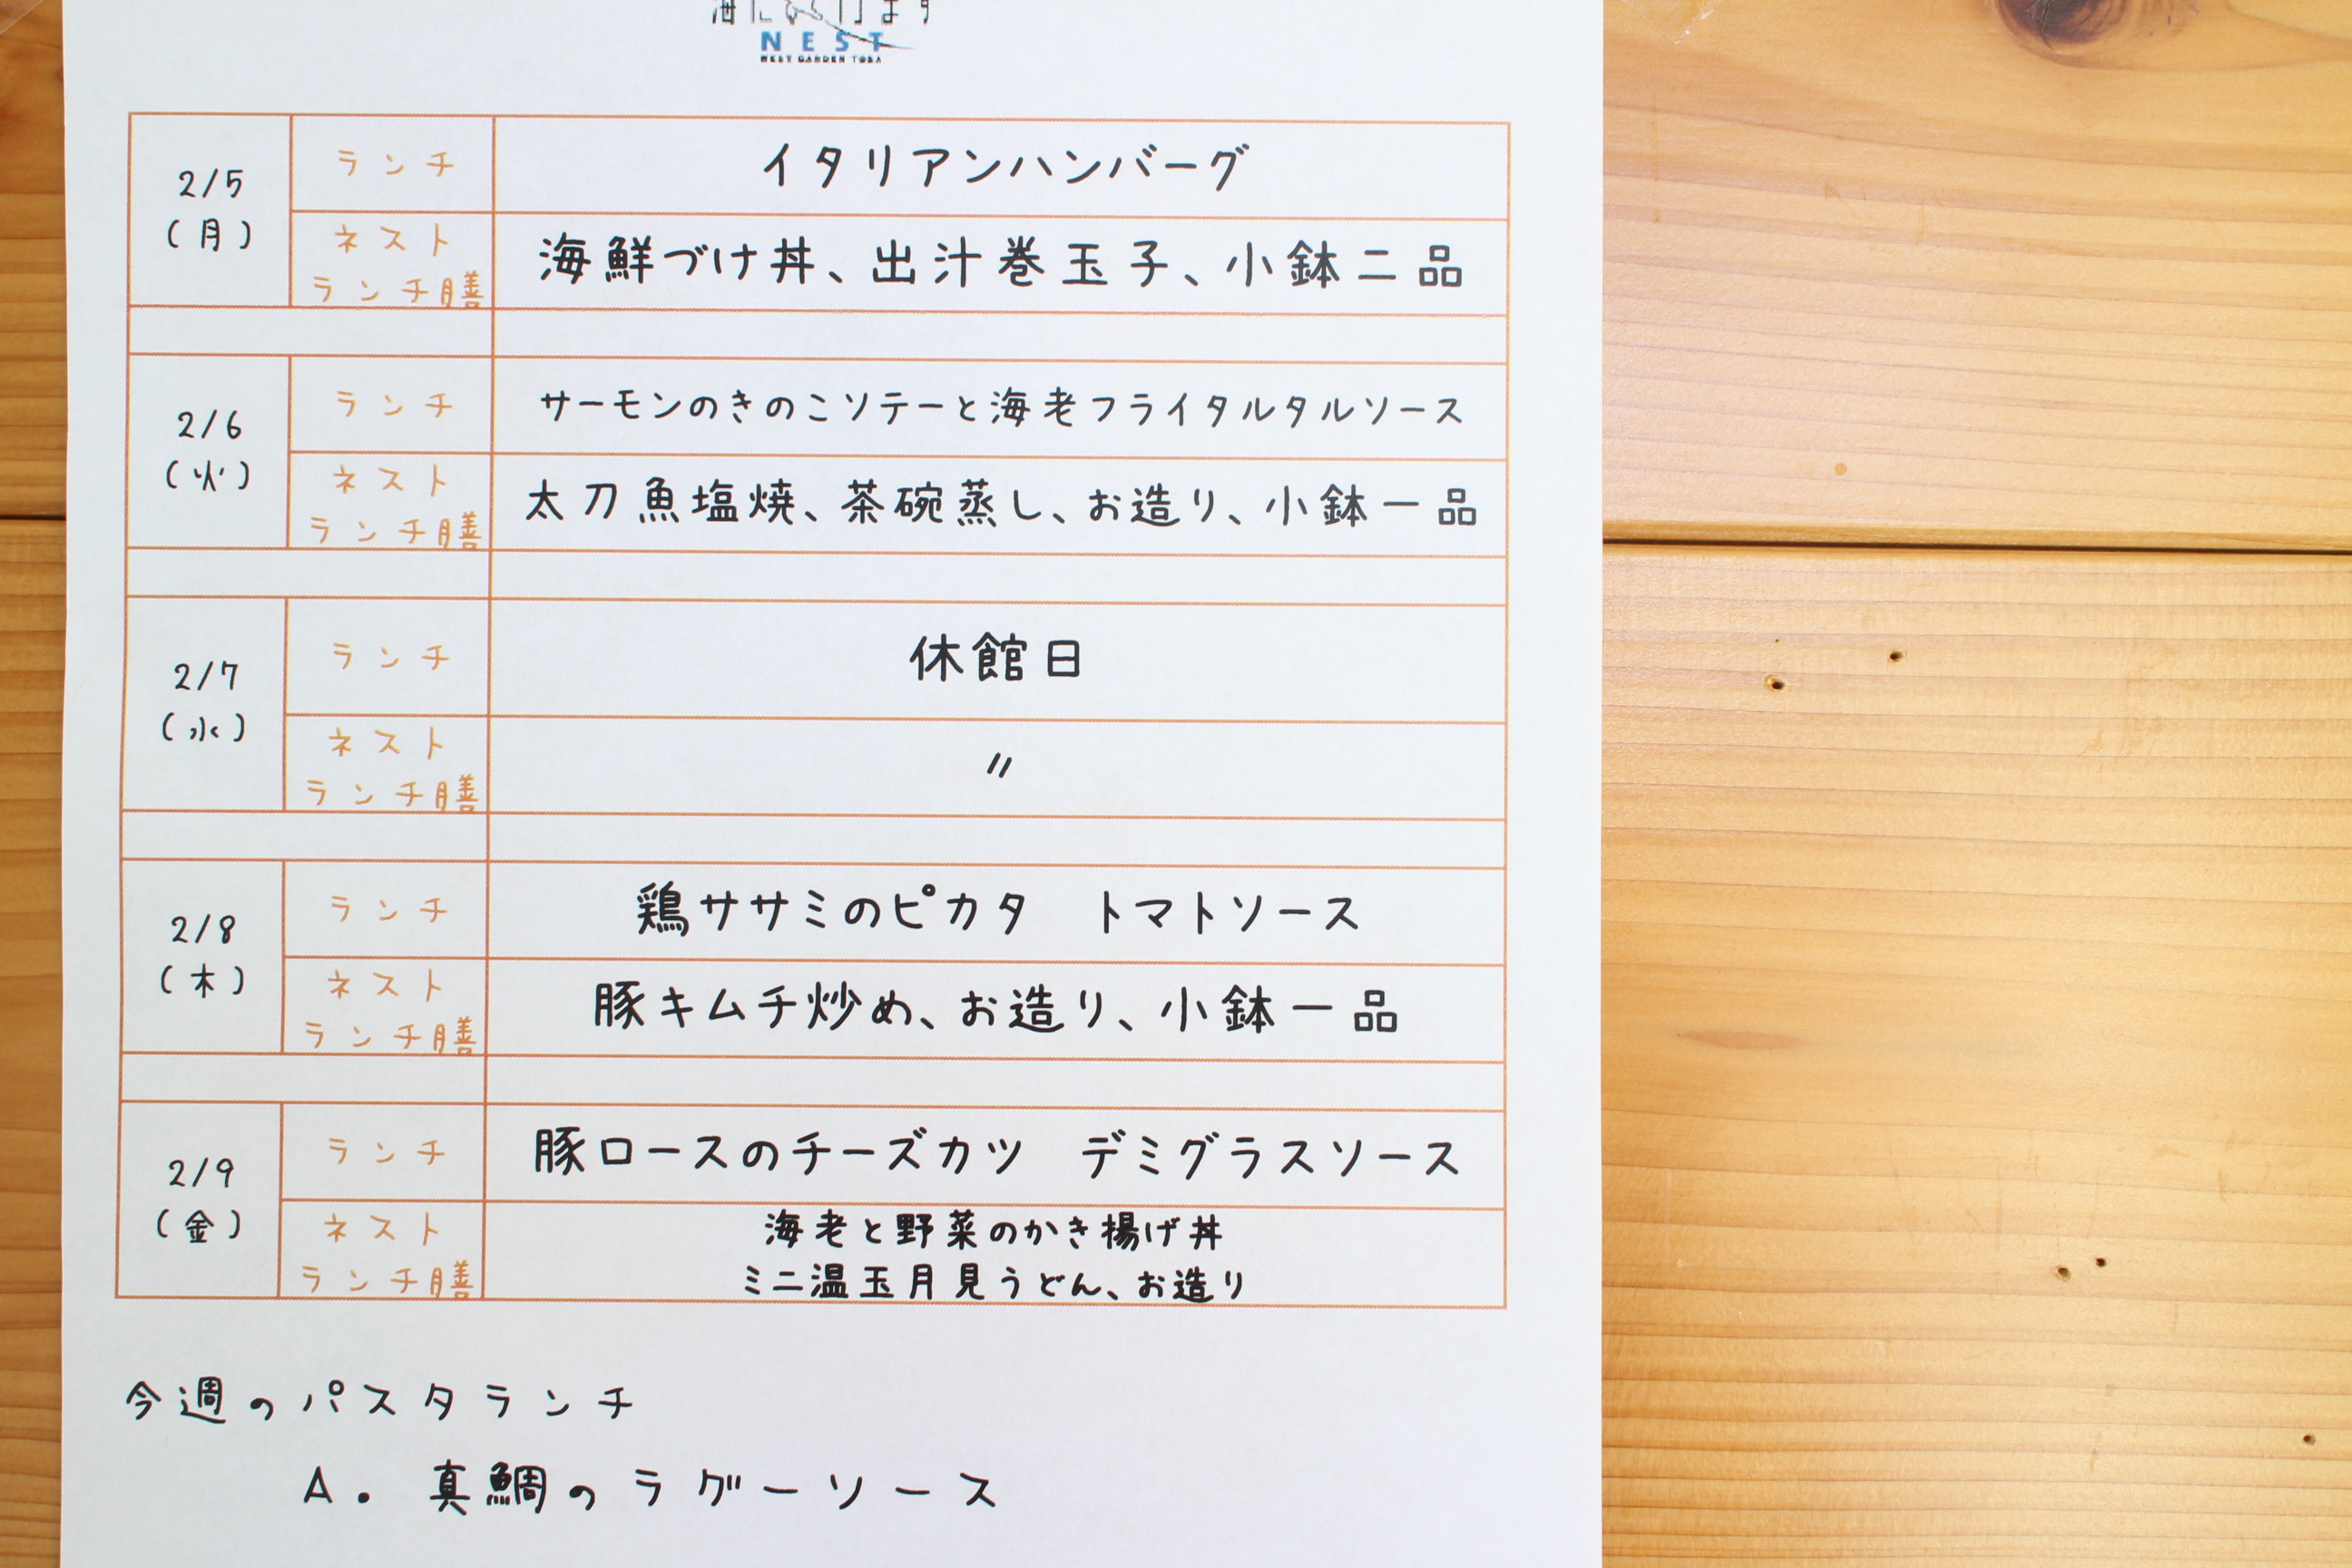 NEST
WEST GARDEN TOBA
2/5
(月)
ランチ
イタリアンハンバーグ
ネスト
ランチ膳
海鮮づけ丼、出汁巻玉子、小鉢二品
2/6
(火)
ランチ
サーモンのきのこソテーと海老フライタルタルソース
ネスト
ランチ膳
太刀魚塩焼、茶碗蒸し、お造り、小鉢一品
2/7
(水)
ランチ
休館日
ネスト
ランチ膳
〃
2/8
(木)
ランチ
鶏ササミのピカタ　トマトソース
ネスト
ランチ膳
豚キムチ炒め、お造り、小鉢一品
2/9
(金)
ランチ
豚ロースのチーズカツ　デミグラスソース
ネスト
ランチ膳
海老と野菜のかき揚げ丼
ミニ温玉月見うどん、お造り
今週のパスタランチ
A. 真鯛のラグーソース